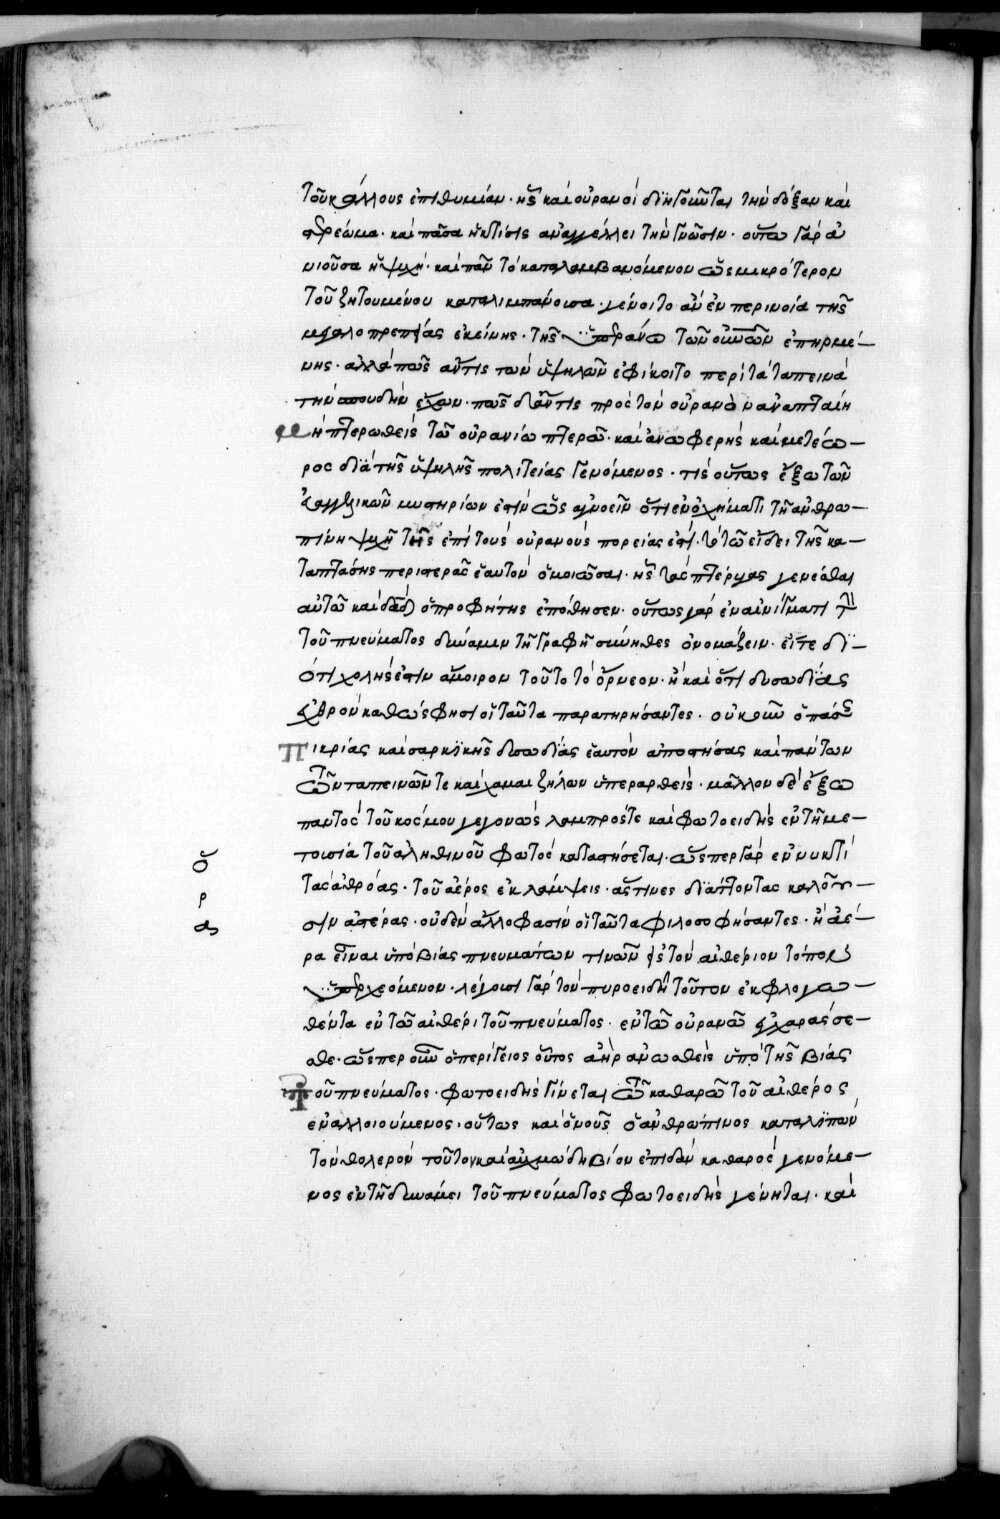 τοῦ κάλλους ἐπιθυμίαν· ἧς καὶ οὐρανοὶ διηγοῦνται τὴν δόξαν καὶ
στερέωμα· καὶ πᾶσα ἡ κτίσις ἀναγγέλλει τὴν γνῶσιν· οὕτω γὰρ ἀ
νιοῦσα ἡ ψυχὴ· καὶ πᾶν τὸ καταλαμβανόμενον ὡς μικρότερον
τοῦ ζητουμένου καταλιμπάνουσα· γένοιτο ἂν ἐν περινοία τῆς
μεγαλοπρεπείας ἐκείνης· τῆς ὑπεράνω τῶν οὐρανῶν ἐπηρμέ–
νης· ἀλλὰ πῶς ἄν τις τῶν ὑψηλῶν ἐφίκοιτο περὶ τὰ ταπεινὰ
τὴν σπουδὴν ἔχων· πῶς δ' ἄν τις πρὸς τὸν οὐρανὸν ἀναπταίη
μὴ πτερωθεὶς τῶ οὐρανίω πτερῶ· καὶ ἀνωφερὴς καὶ μετέω–
ρος διὰ τῆς ὑψηλῆς πολιτείας γενόμενος· τίς οὕτως ἔξω τῶν
εὐαγγελικῶν μυστηρίων ἐστὶν ὡς ἀγνοεῖν ὅτι ἐν ὀχήματι τῆ ἀνθρω–
πίνη ψυχῆ τῆς ἐπὶ τοὺς οὐρανοὺς πορείας ἐστὶ· τὸ τῶ εἴδει τῆς κα–
ταπτάσης περιστερᾶς ἑαυτὸν ὁμοιῶσαι· ἧς τὰς πτέρυγας γενέσθαι
αὐτῶ καὶ δαδ ὁ προφήτης ἐπόθησεν· οὕτως γὰρ ἐν αἰνίγματι τὴν
τοῦ πνεύματος δύναμιν τῆ γραφῆ σύνηθες ὀνομάζειν· εἴτε δι–
ότι χολῆς ἐστὶν ἄμοιρον τοῦτο τὸ ὄρνεον· ἢ καὶ ὅτι δυσωδίας
ἐχθρὸν καθώς φησι οἱ ταῦτα παρατηρήσαντες· οὐκοῦν ὁ πάσης
πικρίας καὶ σαρκϊκῆς δυσωδίας ἑαυτὸν ἀποστήσας καὶ πάντων
τῶν ταπεινῶν τε καὶ χαμαιζήλων ὑπεραρθεὶς· μᾶλλον δὲ ἔξω
παντὸς τοῦ κόσμου γεγονὼς λαμπρός τε καὶ φωτοειδὴς ἐν τῆ με–
τουσία τοῦ ἀληθινοῦ φωτὸς καταστήσεται· ὥσπερ γὰρ ἐν νυκτὶ
ὅ
ρ
α
τὰς ἀθρόας· τοῦ ἀέρος ἐκλάμψεις· ἅς τινες διάττοντας καλοῦ–
σιν ἀστέρας· οὐδὲν ἄλλο φασὶν οἱ ταῦτα φιλοσοφήσαντες· ἢ ἀέ–
ρα εἶναι ὑπὸ βίας πνευμάτων τινῶν εἰς τὸν αἰθέριον τόπον
ὑπερχεόμενον· λέγουσι γὰρ τὸν πυροειδῆ τοῦτον ἐκφλογω–
θέντα ἐν τῶ αἰθέρι τοῦ πνεύματος· ἐν τῶ οὐρανῶ ἐγχαράσσε–
σθαι· ὥσπερ οὖν ὁ περίγειος οὗτος ἀὴρ ἀνωθεὶς ὑπὸ τῆς βίας
τοῦ πνεύματος· φωτοειδὴς γίνεται τῶ καθαρῶ τοῦ αἰθέρος
ἐναλλοιούμενος· οὕτως καὶ ὁ νοῦς ὁ ἀνθρώπινος καταλϊπὼν
τὸν θολερὸν τοῦτον καὶ αὐχμώδη βίον ἐπιδὰν καθαρὸς γενόμε–
νος ἐν τῆ δυνάμει τοῦ πνεύματος φωτοειδὴς γένηται· καὶ